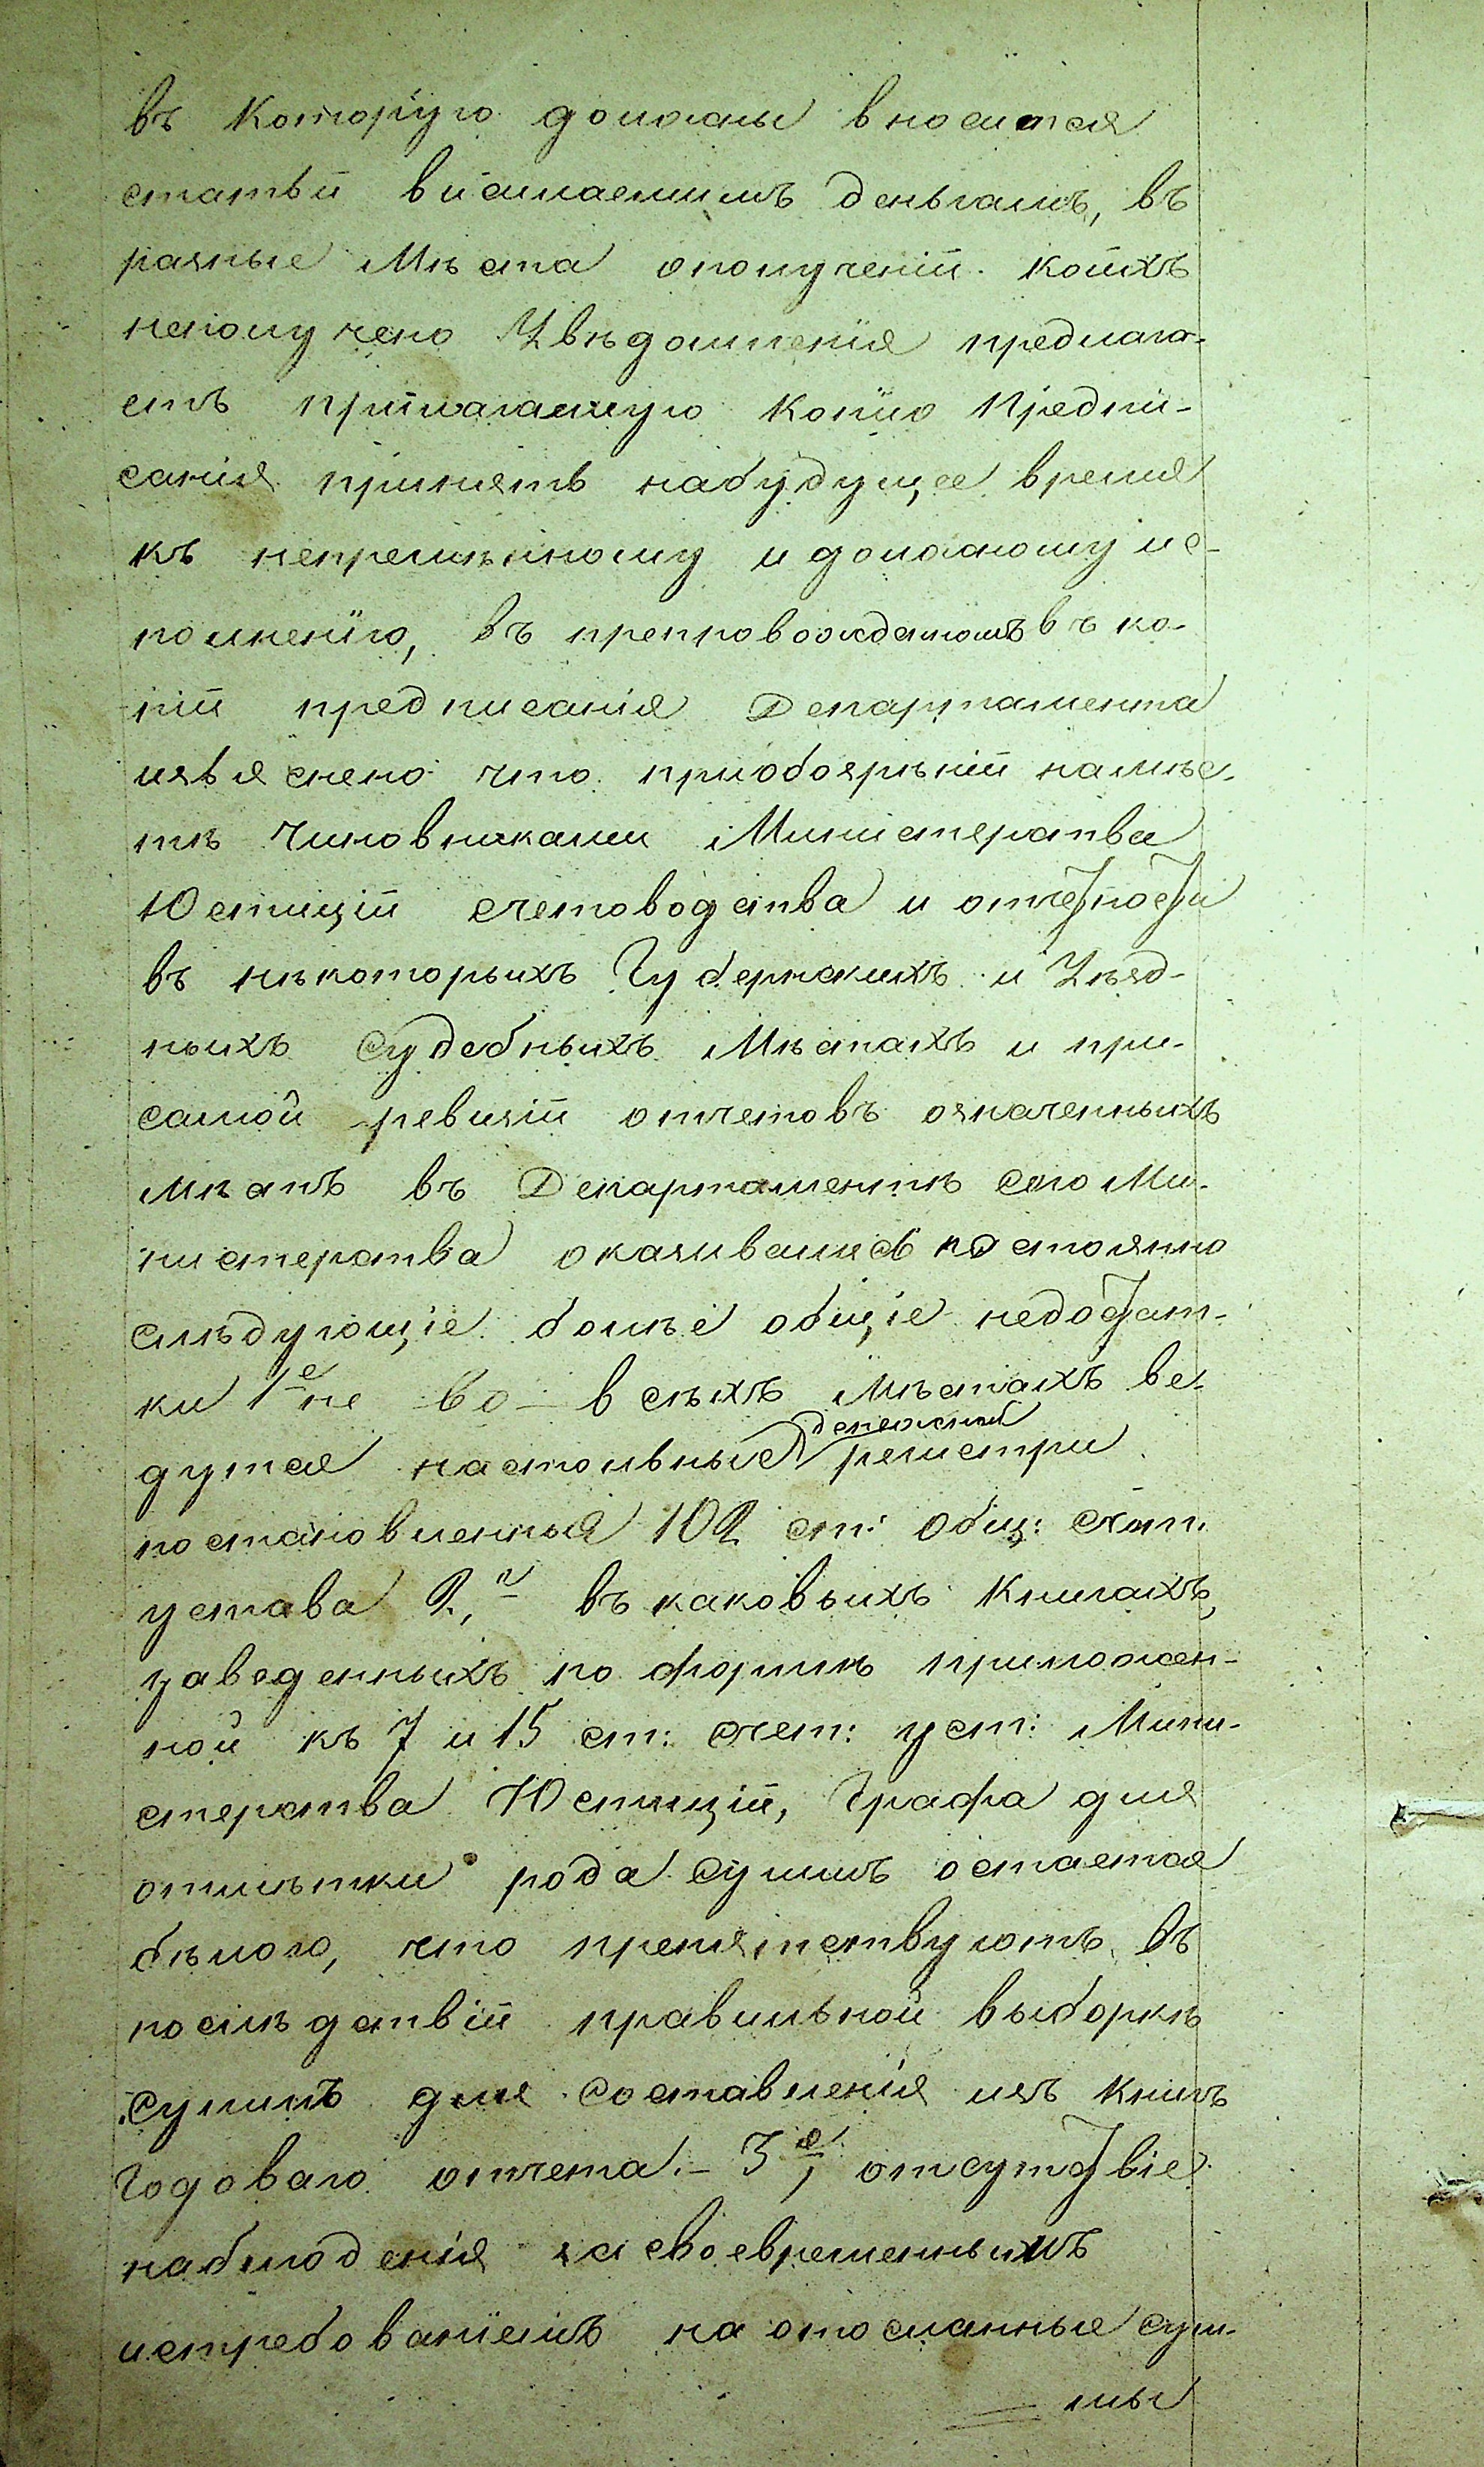 въ которую должны вносится
статьи висилаемимъ деньгамъ, въ
разные Мѣста ополученіи коихъ
неполучено Увѣдомленія предлага-
етъ прилагаемую копію Предпи-
санія принять набудущее время
къ непремѣнному и должному ис-
полненію, въ препровожденномъ въ ко-
піи предписанія Департамента
изъяснено что приобозрѣніи намѣс-
тѣ Чиновниками Министерства
Юстиціи счетоводства и отчетности
въ нѣкоторыхъ Губернскихъ и Уѣзд-
ныхъ Судебныхъ Мѣстахъ и при-
самой ревизіи отчетовъ означенныхъ
мѣстъ въ Департаментѣ сего Ми-
нистерства оказивались постоянно
слѣдующіе болѣе общіе недостат-
ки 1е не во-всѣхъ Мѣстахъ ве-
денежной
дутся настольные регистри
постановленныя 102 ст: общ: счет:
устава 2,е въ каковыхъ Книгахъ,
заведенныхъ по формѣ приложен-
ной къ 7 и 15 ст: счет: уст: Мини-
стерства Юстиціи, Графа для
отмѣтки рода Суммъ остается
бѣлою, что препятствуютъ въ
послѣдствіи правильной выборкѣ
Суммъ для Составленія изъ Книгъ
Годоваго отчета.- 3е, отсутствіе
наблюденія за своевременнымъ
истребованіемъ на отосланные сум-
мы